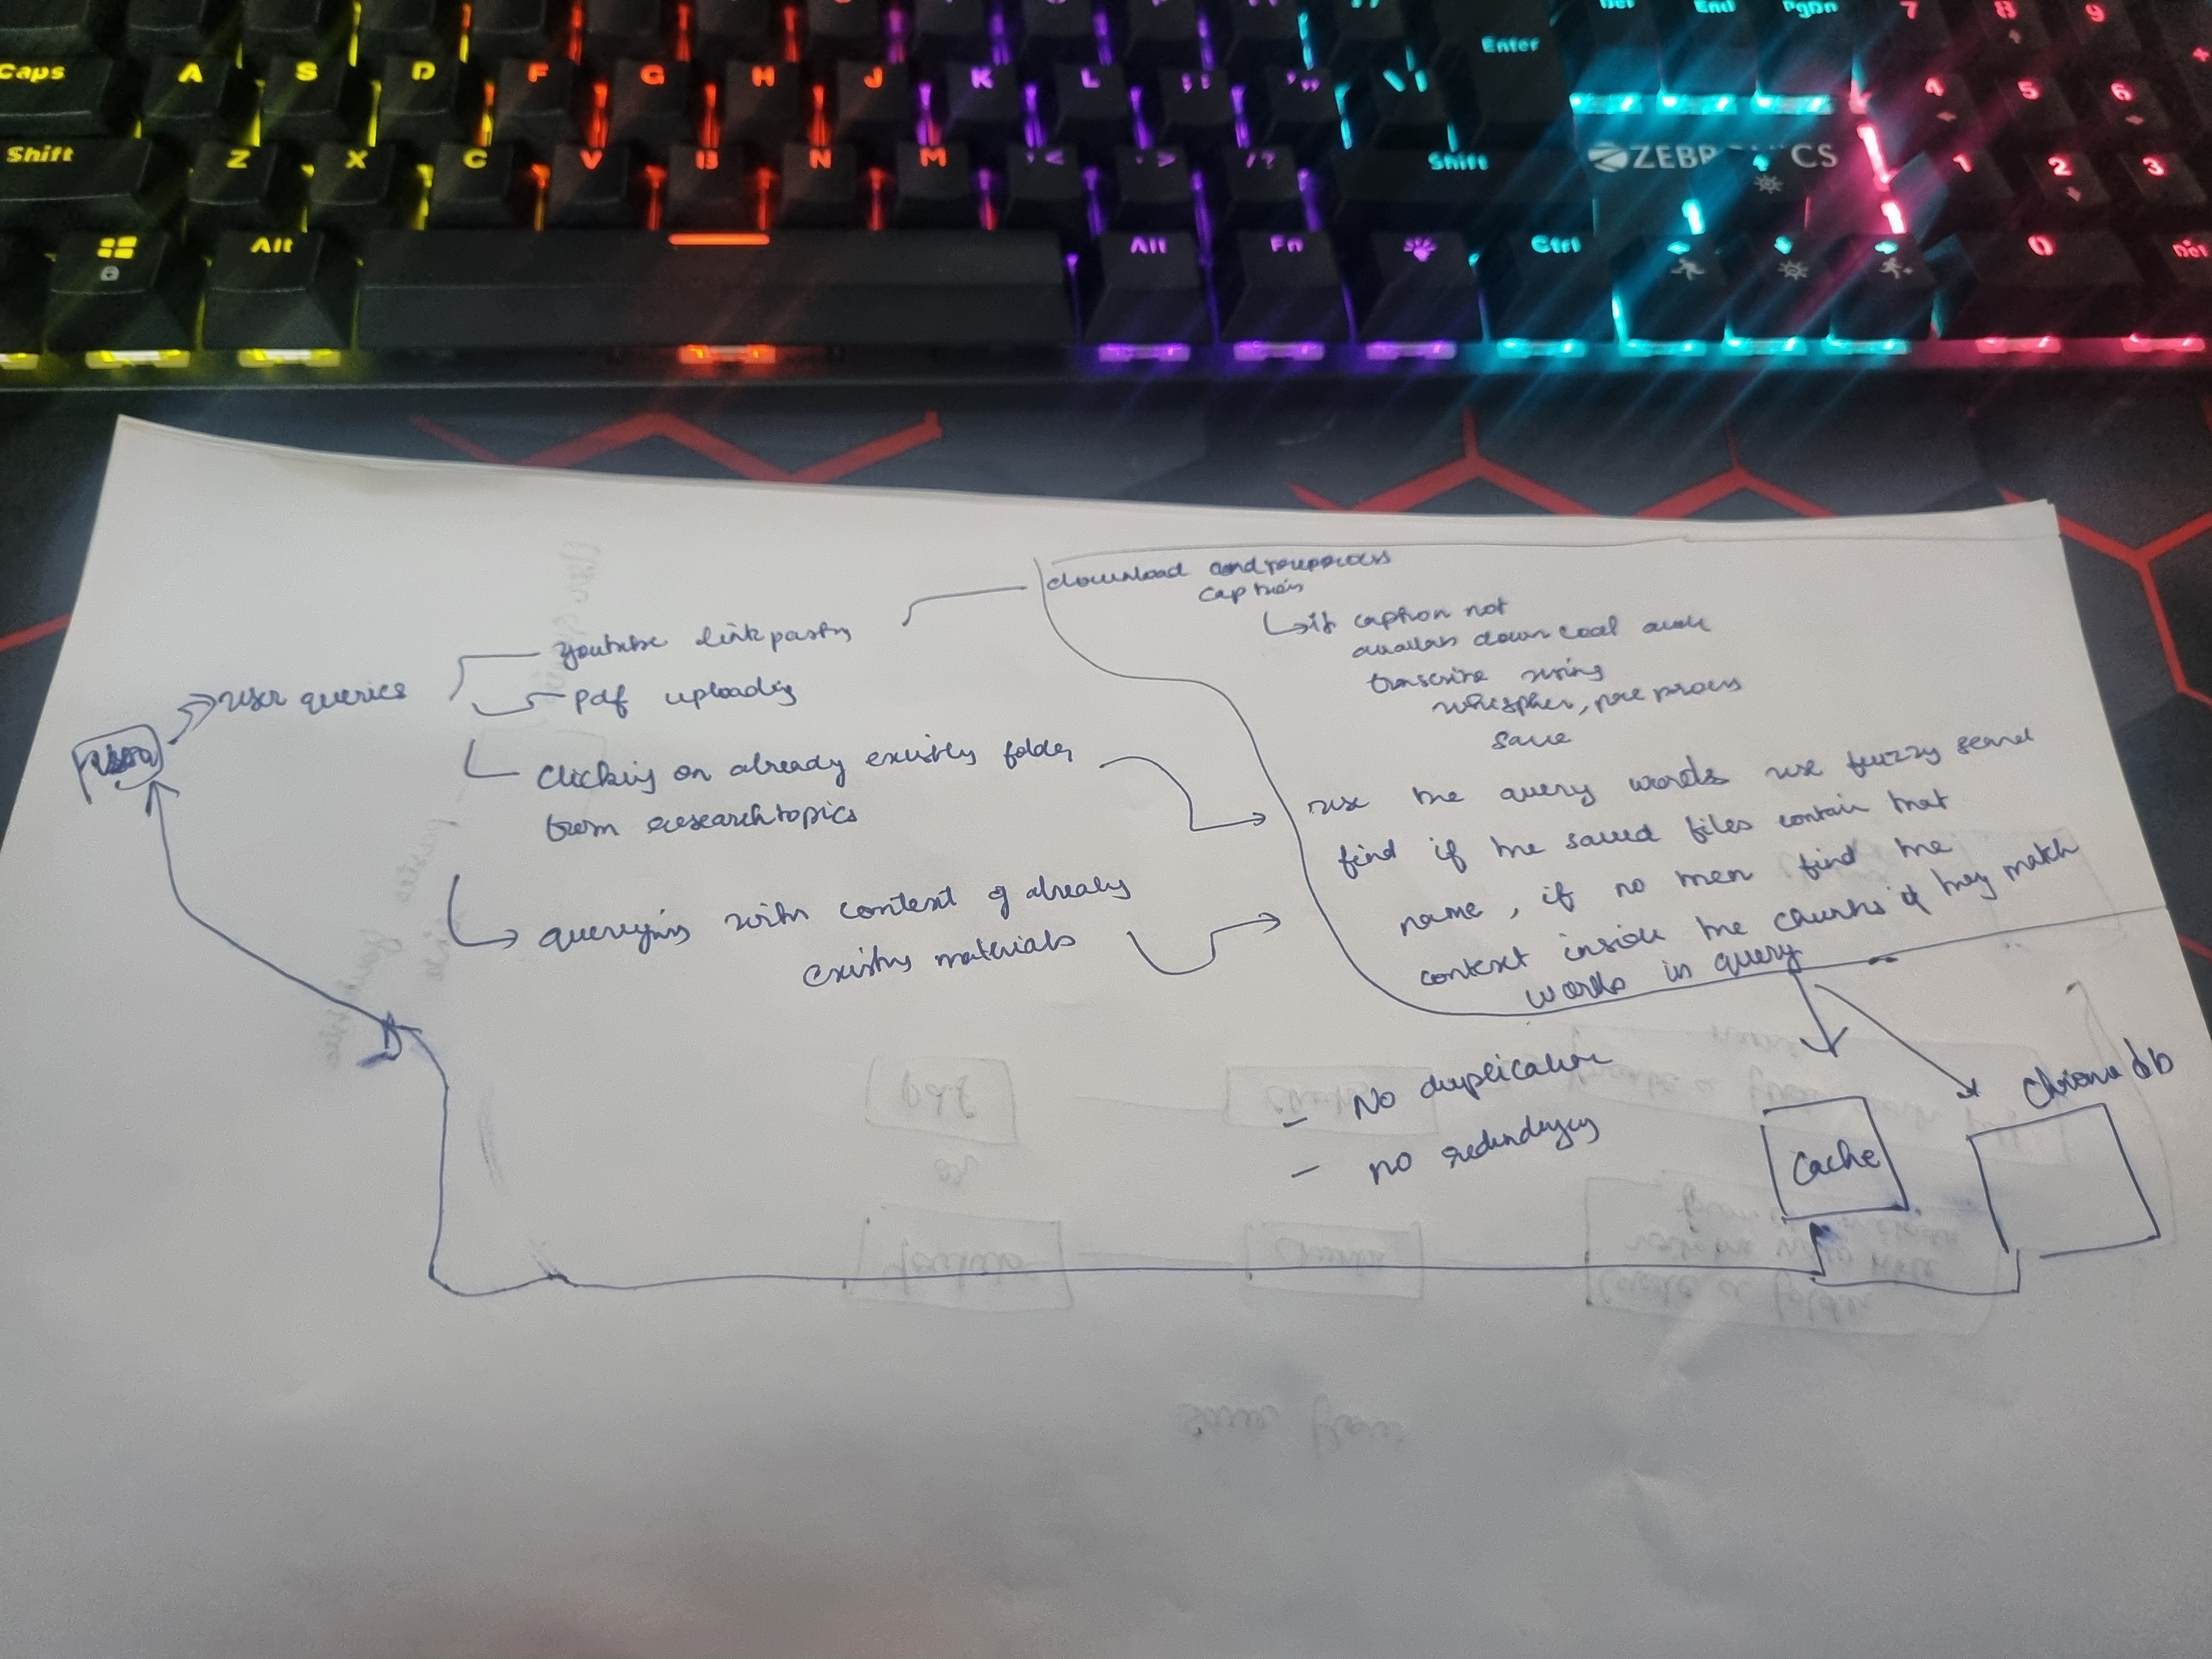 Del End PgDn 7 8 9
Caps A S D F G H J K L ; : ' " \ | Enter 4 5 6
Shift Z X C V B N M , < . > / ? Shift 1 2 3
ZEBRONICS
Alt Alt Fn Ctrl 0 Del
user
user queries
youtube link pasting
pdf uploading
clicking on already existing folder
from research topics
querying with context of already
existing materials
download and preprocess
caption
if caption not
available download audio
transcribe using
whispher, pre process
save
use the query words use fuzzy search
find if the saved files contain that
name, if no then find the
context inside the chunks if they match
words in query
- No duplication
- no redundancy
Cache
Chroma db